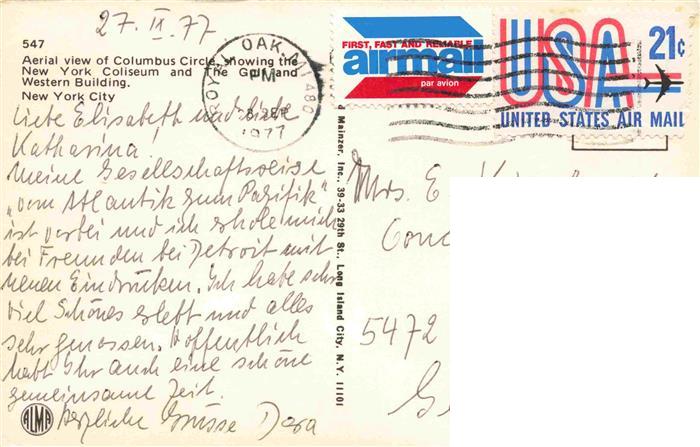 27. IX. 77
547
Aerial view of Columbus Circle, showing the
New York Coliseum and The Gulf and
Western Building.
New York City
Liebe Elisabeth und liebe
Katharina
Meine Gesellschaftsreise
"vom Atlantik zum Pazifik"
ist vorbei und ich erhole mich
bei Freunden bei Detroit mit
neuen Eindrücken. Ich habe sehr
viel Schönes erlebt und alles
sehr genossen. Hoffentlich
habt Ihr auch eine schöne
gemeinsame Zeit.
Herzliche Grüsse Dora
ALMA
Mainzer, Inc., 39-33 29th St., Long Island City, N.Y. 11101
ROYAL OAK, MI 480
PM
SEP
1977
FIRST, FAST AND RELIABLE
airmail
par avion
USA
21¢
UNITED STATES AIR MAIL
Mrs. E.
5472